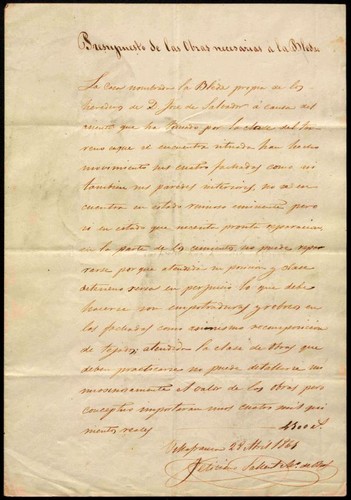 Presupuesto de las Obras necesarias a la Bleda
La Casa nombrada la Bleda propia de los
herederos de D. Jose de Salvador á causa del
asiento que ha tomado por la clase del ter-
reno sobre el encuentra situada han hecho
movimiento sus cuatro fachadas como asi
tambien sus paredes interiores, no se en-
cuentra en estado ruinoso eminente pero
si en estado que necesita pronta reparacion
en la parte de los cimientos no puede repa-
rarse por que atendida su posicion y clase
de terreno seria en perjuicio lo que debe
hacerse son empotraduras y rebozos en
las fachadas como asimismo recomposicion
de tejados atendida la clase de Obras que
deben practicarse no puede detallarse mi-
nuciosamente el valor de las Obras pero
conceptuo importaran unos cuatro mil qui-
nientos reales 4500 rs.
Villafranca 28 Abril 1864